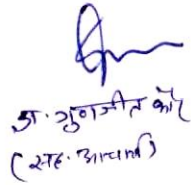 डा. गुणजीत कौर
(सह. आचार्य)